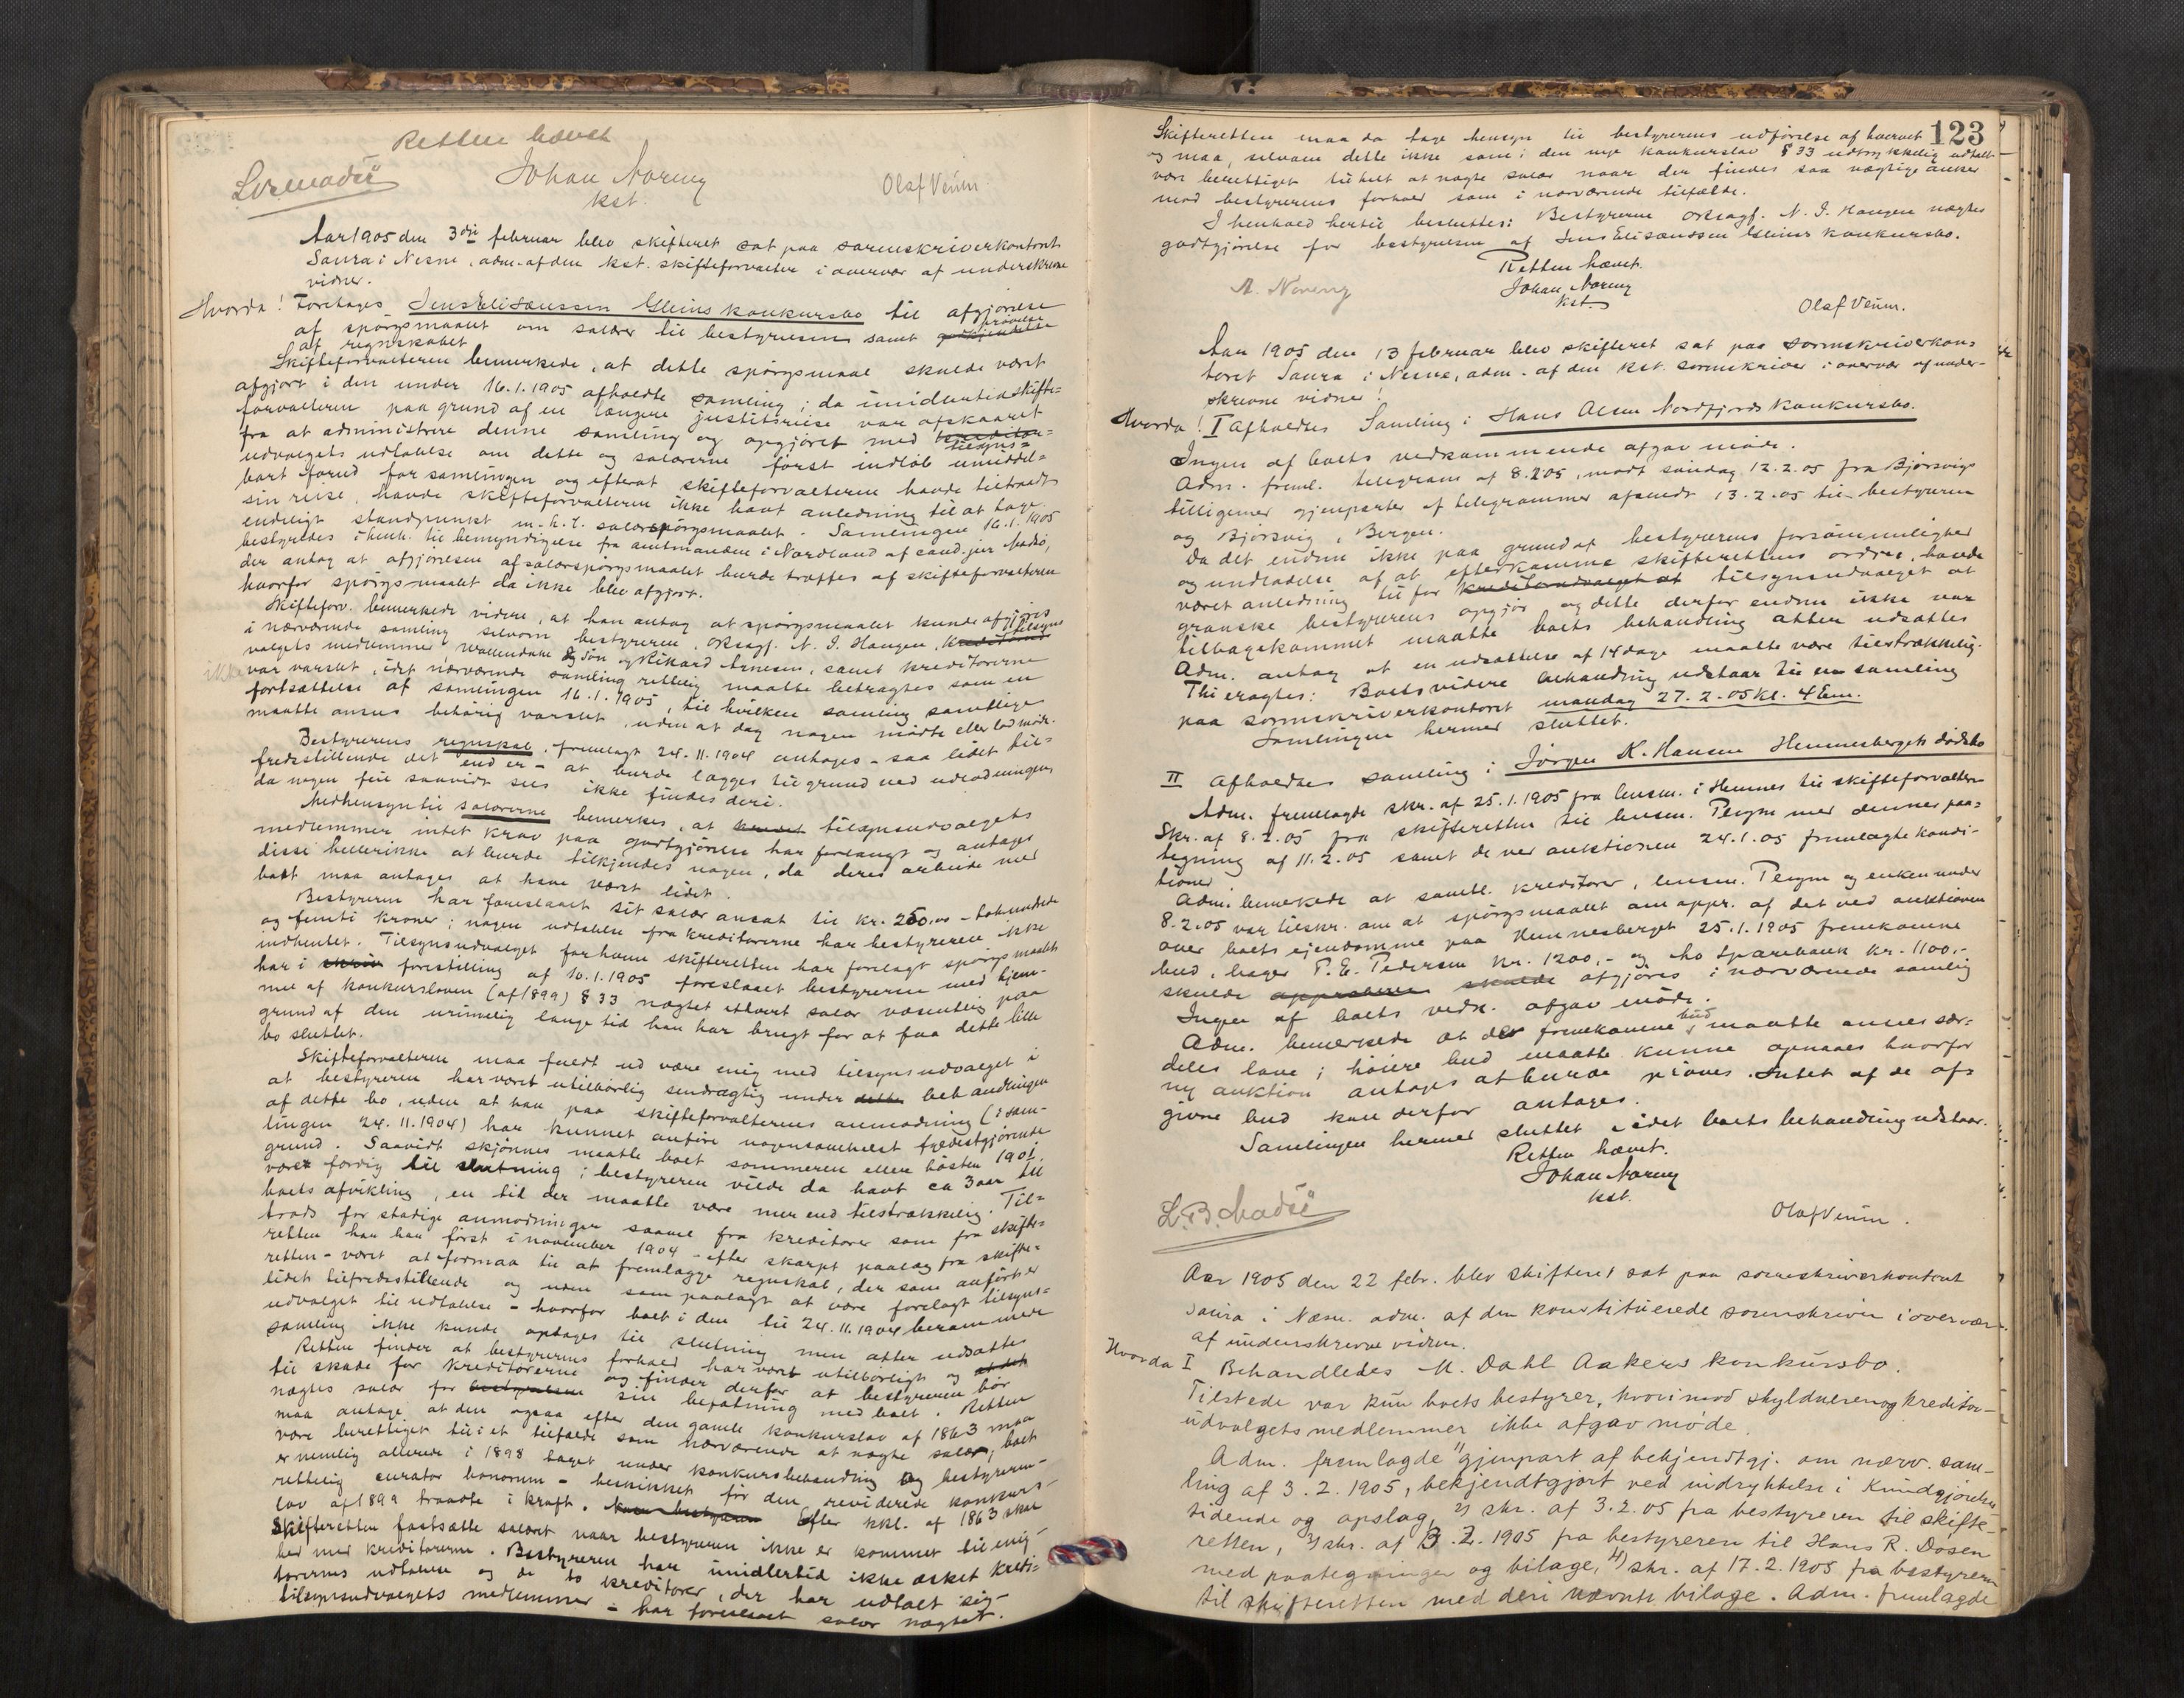 Retten hævet
Johan Noreng
kst.
Olaf Veum.
Aar 1905 den 3die februar blev skifteret sat paa sorenskriverkontoret
Saura i Nesne, adm. af den kst. skifteforvalter i overvær af underskrevne
vidner.
Hvorda! Foretages Jens Elisæussen Gleins konkursbo til afgjørelse
af spørgsmaalet om salærer til bestyrelsen samt godkjendelse prøvelse
af regnskabet
Skifteforvalteren bemerkede, at dette spørgsmaal skulde været
afgjort i den under 16.1.1905 afholdte samling; da imidlertid skifte=
forvalteren paa grund af en længere justitsreise var afskaaret
fra at administrere denne samling og opgjøret med kreditor= tilsyns=
udvalgets udtalelse om dette og salærerne først indløb umiddel=
bart forud for samlingen og efterat skifteforvalteren havde tiltraadt
sin reise, havde skifteforvalteren ikke havt anledning til at tage
endeligt standpunkt m.h.t. salærspørgsmaalet. Samlingen 16.1.1905
bestyredes i henh. til bemyndigelse fra amtmanden i Nordland af cand. jur Madsø,
der antog at afgjørelsen af salærspørgsmaalet burde træffes af skifteforvalteren
hvorfor spørgsmaalet da ikke blev afgjort.
Skifteforv. bemerkede videre, at han antog at spørgsmaalet kunde afgjøres
i nærværende samling selvom bestyreren, oksagf. N. J. Haugen, kreditorud tilsynsud
valgets medlemmer Wallendahl & Søn og Rikard Arnesen, samt kreditorerne
ikke var varslet, idet nærværende samling rettelig maatte betragtes som en
fortsættelse af samlingen 16.1.1905, til hvilken samling samtlige
maatte ansees behørig varslet, uden at dog nogen mødte eller lod møde.
Bestyrerens regnskab, fremlagt 24.11.1904 antages – saa lidet til=
fredsstillende det end er – at burde lægges til grund ved udlodningen,
da nogen feil saavidt sees ikke findes deri.
Med hensyn til salærerne bemerkes, at tilsynsudvalgets
medlemmer intet krav paa godtgjørelse har forlangt og antages
disse hellerikke at burde tilkjendes nogen, da deres arbeide med
boet maa antages at have været lidet.
Bestyreren har foreslaaet sit salær ansat til kr. 250.00 – tohundrede
og femti kroner; nogen udtalelse fra kreditorerne har bestyreren ikke
indhentet. Tilsynsudvalget forhvem skifteretten har forelagt spørgsmaalet
har i skriv forestilling af 10.1.1905 foreslaaet bestyreren med hjem=
mel af konkursloven (af 1899) § 33 nægtet ethvert salær væsentlig paa
grund af den urimelig lange tid han har brugt for at faa dette lille
bo sluttet.
Skifteforvalteren maa fuldt ud være enig med tilsynsudvalget i
at bestyreren har været utilbørlig sendrægtig under dette behandlingen
af dette bo, uden at han paa skifteforvalterens anmodning (i sam=
lingen 24.11.1904) har kunnet anføre nogensomhelst fyldestgjørende
grund. Saavidt skjønnes maatte boet sommeren eller høsten 1901
været færdig til slutning; bestyreren vilde da havt ca 3 aar til
boets afvikling, en tid der maatte være mer end tilstrækkelig. Til=
trods for stadige anmodninger saavel fra kreditorer som fra skifte=
retten har han først i november 1904 – efter skarpt paalæg fra skifte=
retten – været at formaa til at fremlægge regnskab, der som anført er
lidet tilfredsstillende og uden som paalagt at være forelagt tilsyns=
udvalget til udtalelse – hvorfor boet i den til 24.11.1904 berammede
samling ikke kunde optages til slutning men atter udsattes
Retten finder at bestyrerens forhold har været utilbørligt og at det
til skade for kreditorerne og finder derfor at bestyreren bør
nægtes salær for bestyrelsen sin befatning med boet. Retten
maa antage at den ogsaa efter den gamle konkurslov af 1863 maa
være berettiget til i et tilfælde som nærværende at nægte salær; boet
er nemlig allerede i 1898 taget under konkursbehandling og bestyreren –
rettelig curator bonorum – beskikket før den reviderede konkurs=
lov af 1899 traadte i kraft. Efter kkl. af 1863 skal
Skifteretten fastsætte salæret naar bestyreren ikke er kommet til enig=
hed med kreditorerne. Bestyreren har imidlertid ikke æsket kredi=
torernes udtalelse og de to kreditorer, der har udtalt sig –
tilsynsudvalgets medlemmer – har foreslaaet salær nægtet.
123
Skifteretten maa da tage hensyn til bestyrerens udførelse af hvervet
og maa, selvom dette ikke som i den nye konkurslov § 33 udtrykkelig udtalt
være berettiget til helt at nægte salær naar der findes saa vægtige anker
mod bestyrerens forhold som i nærværende tilfælde.
I henhold hertil besluttes: Bestyreren oksagf. N. J. Haugen nægtes
godtgjørelse for bestyrelsen af Jens Elisæussen Gleins konkursbo.
Retten hævet.
Johan Noreng
kst.
Olaf Veum.
Aar 1905 den 13 februar blev skifteret sat paa sorenskriverkon=
toret Saura i Nesne, adm. af den kst. sorenskriver i overvær af under=
skrevne vidner.
Hvorda! I Afholdtes Samling i Hans Olsen Nordfjords konkursbo.
Ingen af boets vedkommende afgav møde.
Adm. freml. telegram af 8.2.05, modt søndag 12.2.05 fra Bjørsvigs
tilligemed gjenparter af telegrammer afsendt 13.2.05 til bestyreren
og Bjørsvig, Bergen.
Da det endnu ikke paa grund af bestyrerens forsømmelighed
og undladelse af at efterkomme skifterettens ordre, havde
været anledning til for kreditorudvalget at tilsynsudvalget at
granske bestyrerens opgjør og dette derfor endnu ikke var
tilbagekommet maatte boets behandling atter udsættes
Adm. antog at en udsættelse af 14 dage maatte være tilstrækkelig.
Thi eragtes: Boets videre behandling udstaar til en samling
paa sorenskriverkontoret mandag 27.2.05 kl. 4 Em.
Samlingen hermed sluttet.
II Afholdtes samling i Jørgen K. Hansen Hemnesbergets dødsbo
Adm. fremlagde skr. af 25.1.1905 fra lensm. i Hemnes til skifteforvalteren
Skr. af 8.2.05 fra skifteretten til lensm. med dennes paa=
tegning af 11.2.05 samt de ved auktionen 24.1.05 fremlagte kondi=
tioner
Adm. bemerkede at samtl. kreditorer, lensm. og enken under
8.2.05 var tilskr. om at spørgsmaalet om appr. af det ved auktionen
over boets eiendomme paa Hemnesberget 25.1.1905 fremkomne
bud, P. E. Pedersen kr. 1200,- og Mo Sparebank kr. 1100,-
skulde afgjøres i nærværende samling
Ingen af boets vedk. afgav møde.
Adm. bemerkede at det fremkomne bud maatte ansees sær=
deles lave; høiere bud maatte kunne opnaaes hvorfor
ny auktion antages at burde prøves. Intet af de af=
givne bud kan derfor antages.
Samlingen hermed sluttet idet boets behandling udstaar.
Retten hævet.
Johan Noreng
kst.
Olaf Veum.
Aar 1905 den 22 febr. blev skifteret sat paa sorenskriverkontoret
Saura i Nesne. adm. af den konstituerede sorenskriver i overvær
af underskrevne vidner.
Hvorda I Behandledes M. Dahl Aakers konkursbo.
Tilstede var kun boets bestyrer, hvorimod skyldneren og kreditor-
udvalgets medlemmer ikke afgav møde.
Adm. fremlagde 1) gjenpart af bekjendtgj. om nærv. sam-
ling af 3.2.1905, bekjendtgjort ved indrykkelse i Kundgjørelses
tidende og opslag, 2) skr. af 3.2.05 fra bestyreren til skifte-
retten, 3) skr. af 3.2.1905 fra bestyreren til Hans R. Dosen
med paategninger og bilage, 4) skr. af 17.2.1905 fra bestyreren
til skifteretten med deri nævnte bilage. Adm. fremlagde